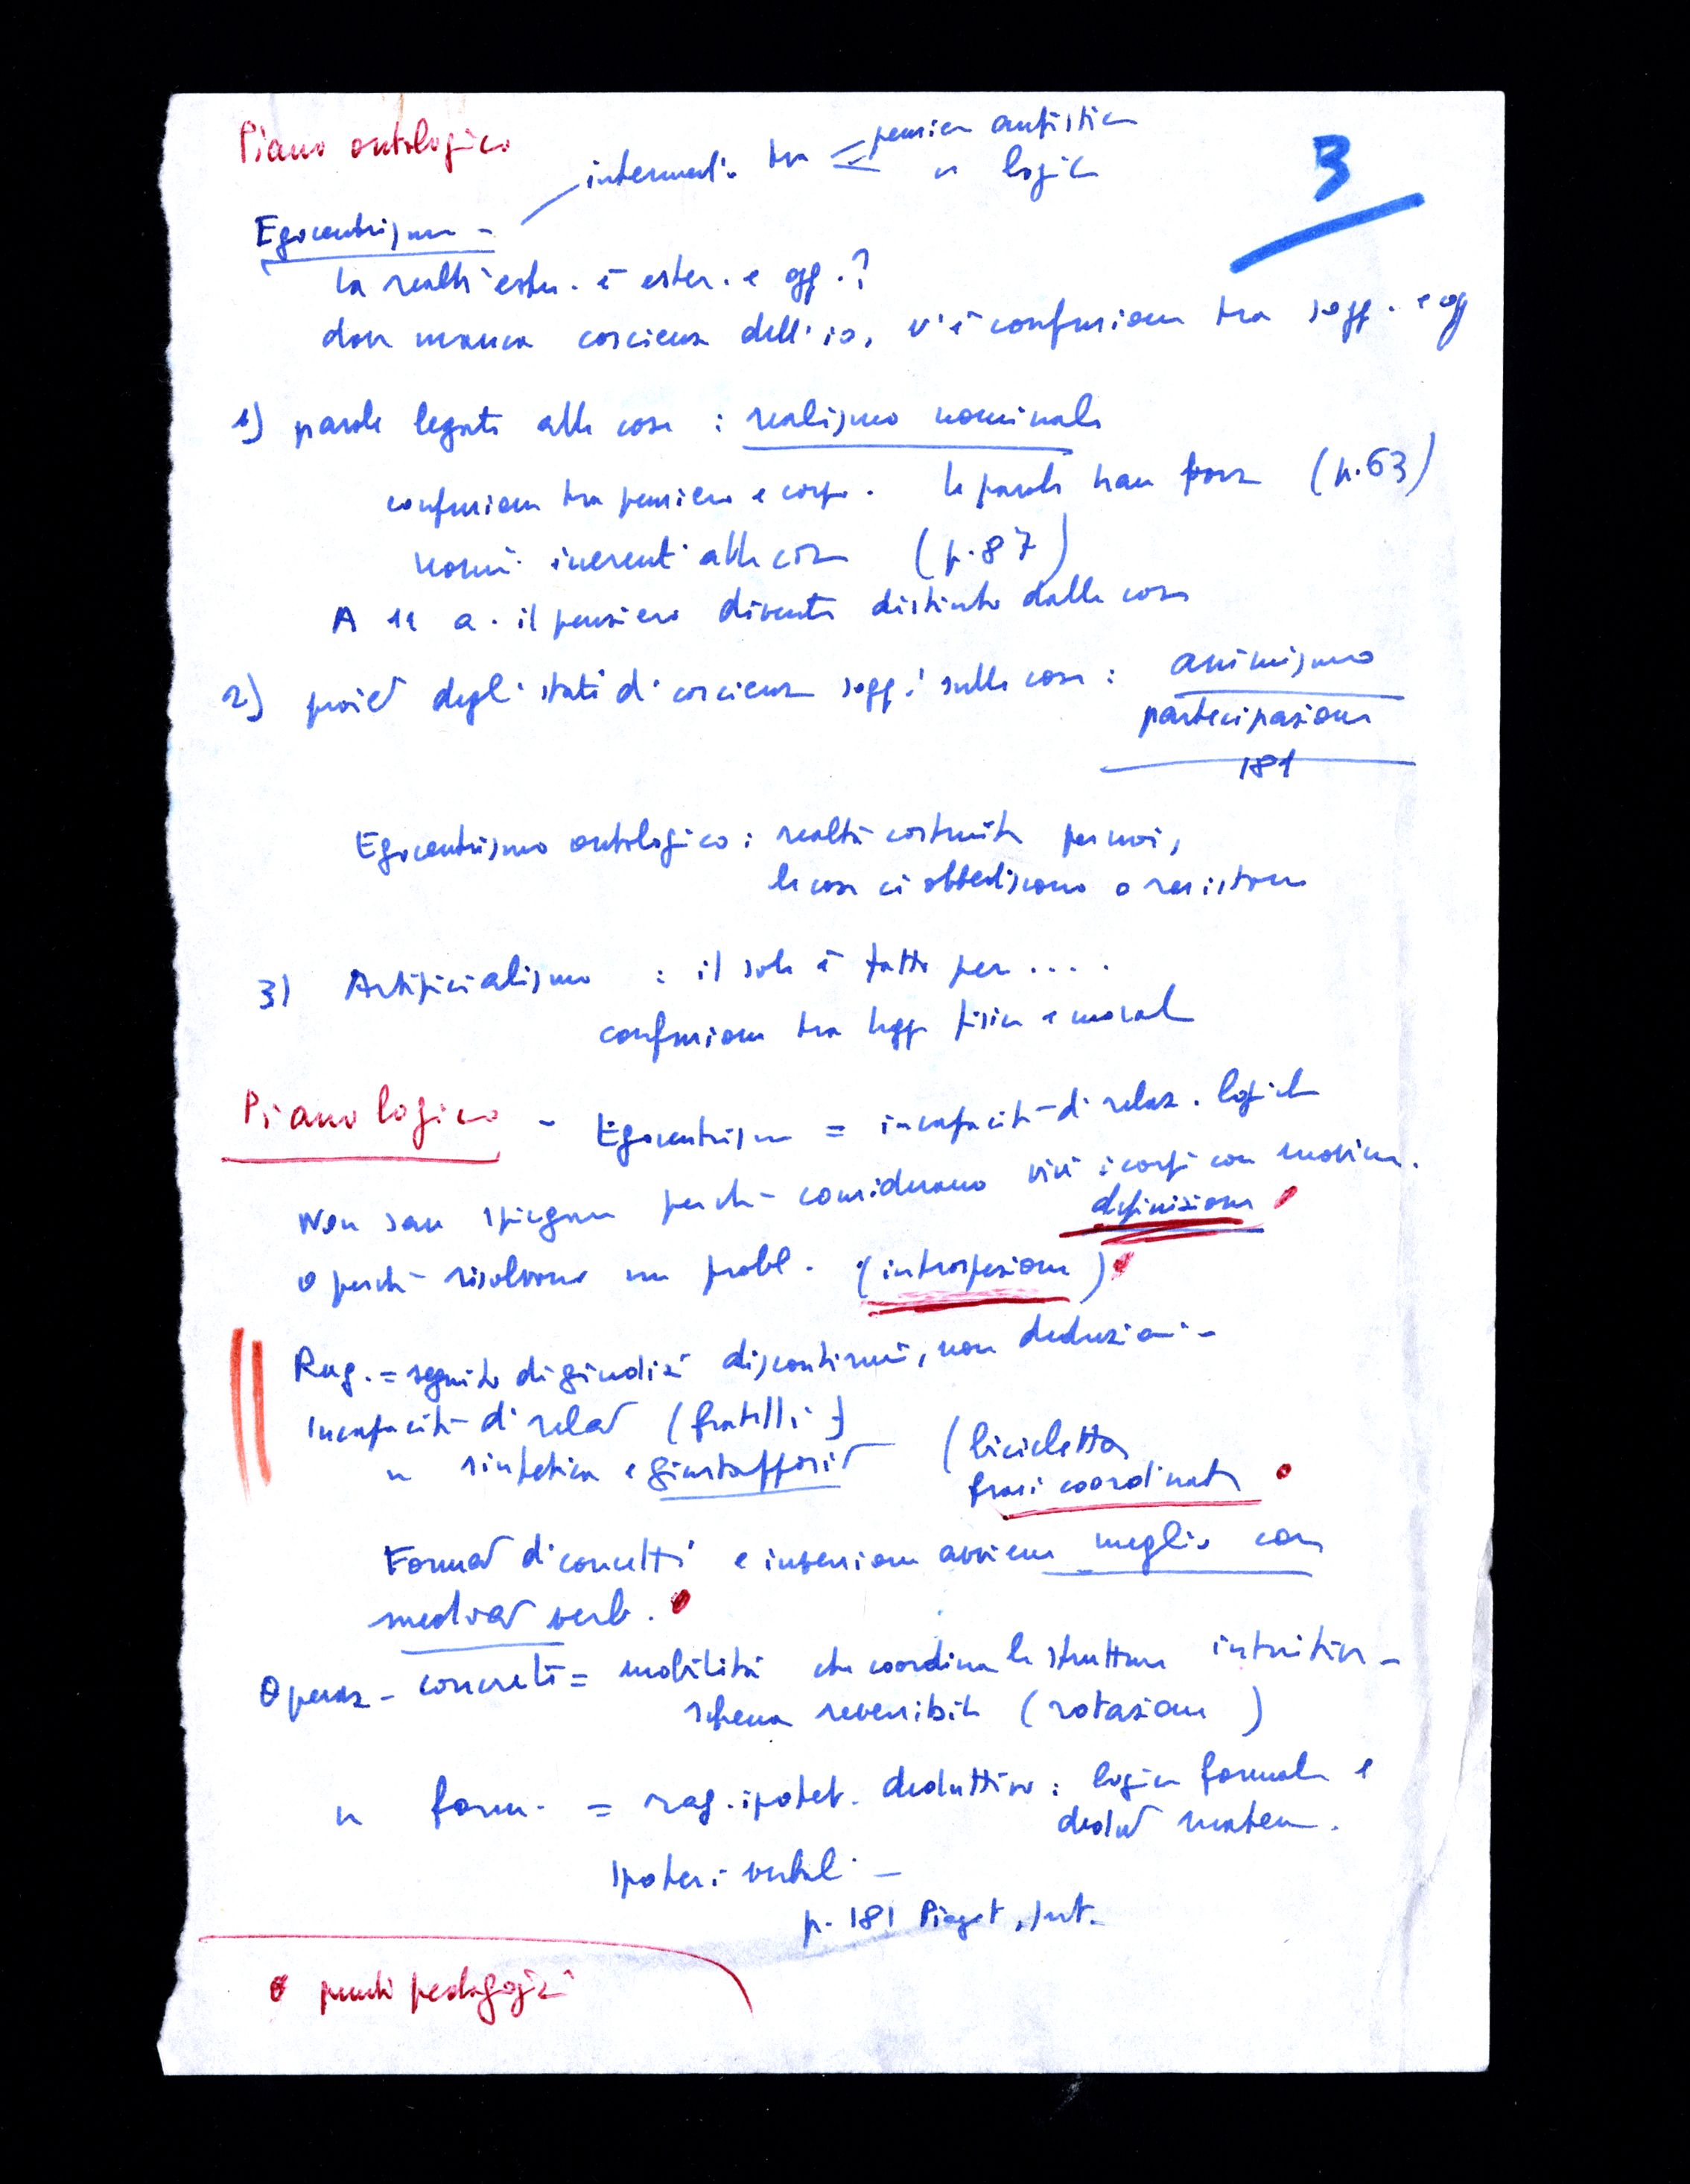 Piano ontologico
3
intermedio tra < pensiero autistico
" logico
Egocentrismo -
la realtà estern. è ester. e ogg.?
dove manca coscienza dell'io, v'è confusione tra sogg. e ogg
1) parole legate alle cose : realismo nominale
confusione tra pensiero e corpo. le parole han forza (p.63)
nomi inerenti alle cose (p.87)
A 11 a. il pensiero diventa distinto dalle cose
2) degli stati di coscienza sogg.i sulle cose : animismo
partecipazione
181
Egocentrismo ontologico : realtà costruita per noi,
le cose ci obbediscono o resistono
3) Artificialismo : il sole è fatto per ....
confusione tra legge fisica e morale
Piano logico - Egocentrismo = incapacità di relaz. logiche
Non san spiegare perché considerano vivi i corpi con movim.
definizione
o perché risolvono un probl. (introspezione)
Rag. = seguito di giudizi discontinui, non deduzioni -
Incapacità di (fratelli)
" sintetica e (bicicletta
frasi coordinate
di concetti e inversione avviene meglio con
verb.
Operaz - concrete = mobilità che coordina le strutture intuitive -
schema reversibile (rotazione)
" form. = rag. ipotet. deduttivo : logica formale e
matem.
Ipotesi verbali -
p. 181 Piaget, Int.
punti pedagogici